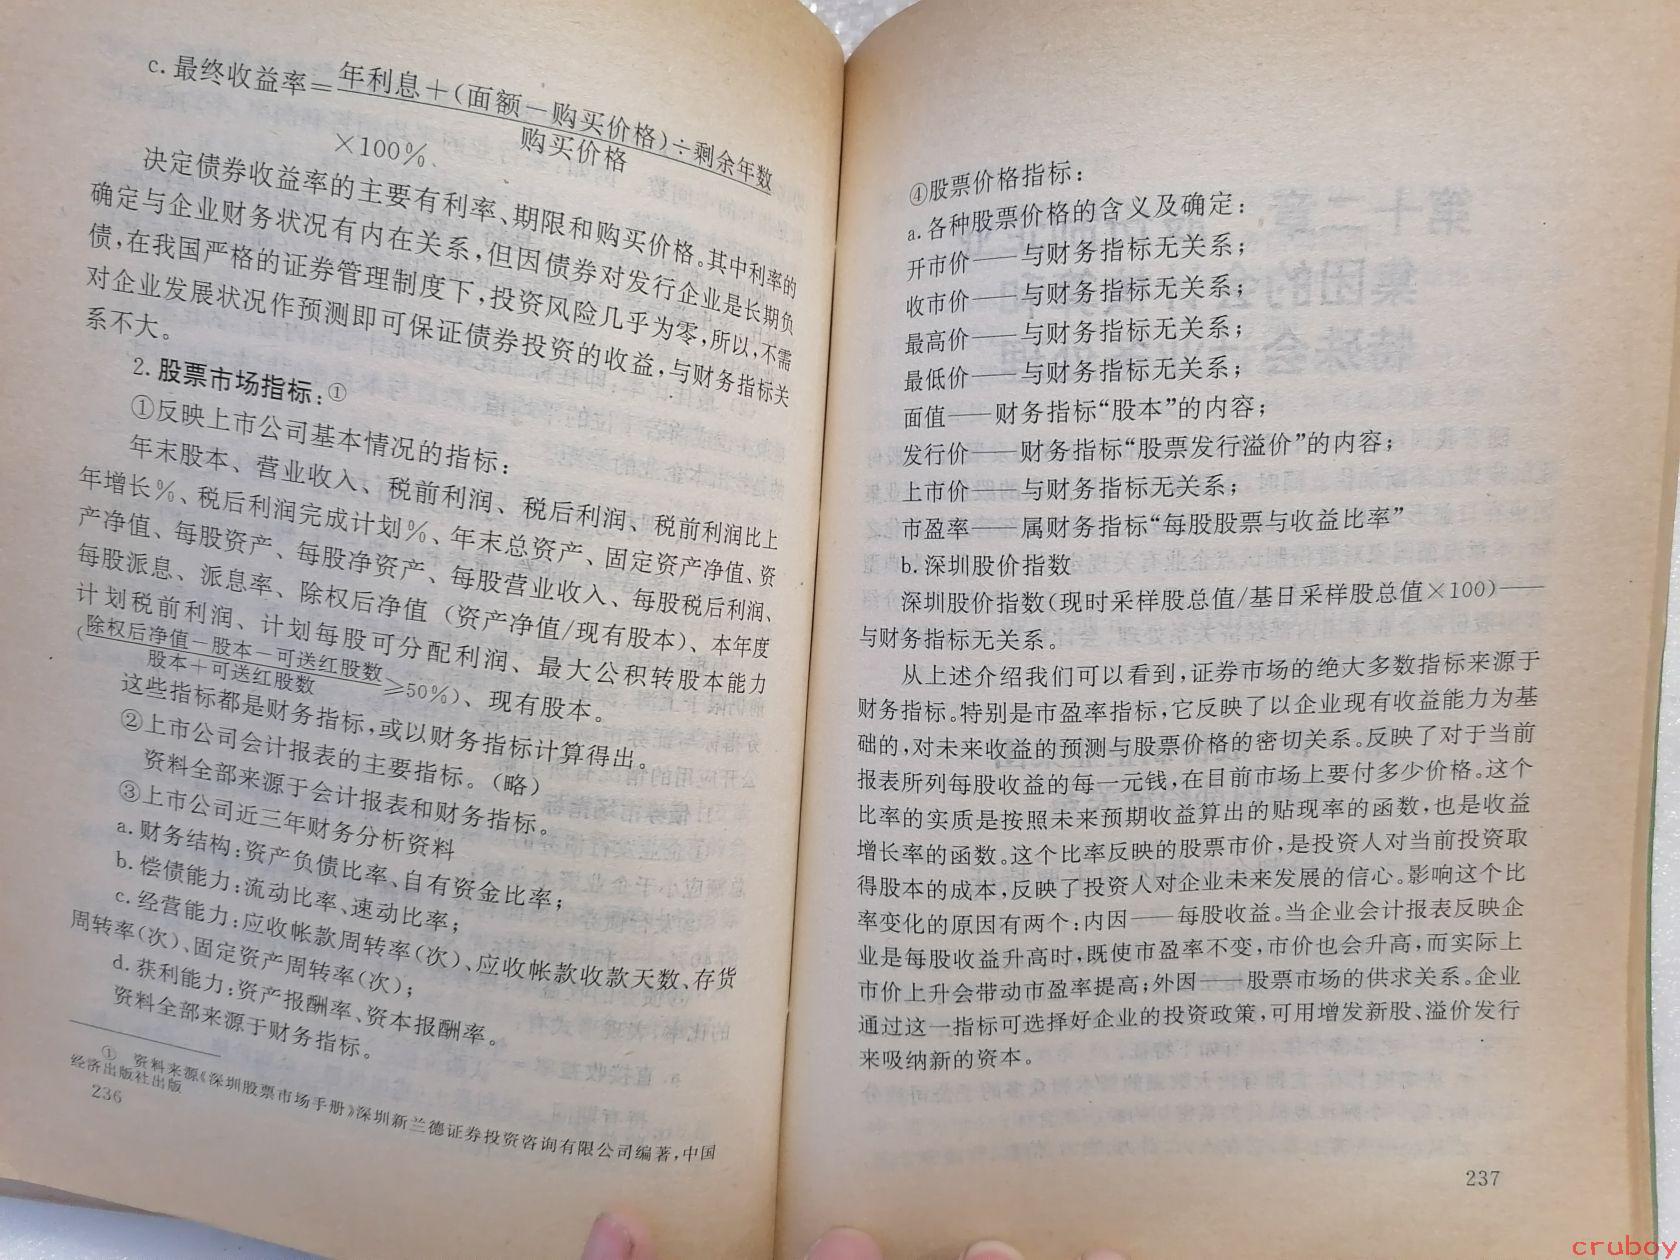 c.最终收益率=年利息+(面额-购买价格)÷剩余年数
购买价格
×100%
决定债券收益率的主要有利率、期限和购买价格。其中利率的
确定与企业财务状况有内在关系,但因债券对发行企业是长期负
债,在我国严格的证券管理制度下,投资风险几乎为零,所以,不需
对企业发展状况作预测即可保证债券投资的收益,与财务指标关
系不大。
2.股票市场指标:①
①反映上市公司基本情况的指标:
年末股本、营业收入、税前利润、税后利润、税前利润比上
年增长%、税后利润完成计划%、年末总资产、固定资产净值、资
产净值、每股资产、每股净资产、每股营业收入、每股税后利润、
每股派息、派息率、除权后净值(资产净值/现有股本)、本年度
计划税前利润、计划每股可分配利润、最大公积转股本能力
(除权后净值-股本-可送红股数
股本+可送红股数
≥50%)、现有股本。
这些指标都是财务指标,或以财务指标计算得出。
②上市公司会计报表的主要指标。(略)
资料全部来源于会计报表和财务指标。
③上市公司近三年财务分析资料
a.财务结构:资产负债比率、自有资金比率;
b.偿债能力:流动比率、速动比率;
c.经营能力:应收帐款周转率(次)、应收帐款收款天数、存货
周转率(次)、固定资产周转率(次);
d.获利能力:资产报酬率、资本报酬率。
资料全部来源于财务指标。
① 资料来源《深圳股票市场手册》深圳新兰德证券投资咨询有限公司编著,中国
经济出版社出版
236
④股票价格指标:
a.各种股票价格的含义及确定:
开市价——与财务指标无关系;
收市价——与财务指标无关系;
最高价——与财务指标无关系;
最低价——与财务指标无关系;
面值——财务指标“股本”的内容;
发行价——财务指标“股票发行溢价”的内容;
上市价——与财务指标无关系;
市盈率——属财务指标“每股股票与收益比率”
b.深圳股价指数
深圳股价指数(现时采样股总值/基日采样股总值×100)——
与财务指标无关系。
从上述介绍我们可以看到,证券市场的绝大多数指标来源于
财务指标。特别是市盈率指标,它反映了以企业现有收益能力为基
础的,对未来收益的预测与股票价格的密切关系。反映了对于当前
报表所列每股收益的每一元钱,在目前市场上要付多少价格。这个
比率的实质是按照未来预期收益算出的贴现率的函数,也是收益
增长率的函数。这个比率反映的股票市价,是投资人对当前投资取
得股本的成本,反映了投资人对企业未来发展的信心。影响这个比
率变化的原因有两个:内因——每股收益。当企业会计报表反映企
业是每股收益升高时,既使市盈率不变,市价也会升高,而实际上
市价上升会带动市盈率提高;外因——股票市场的供求关系。企业
通过这一指标可选择好企业的投资政策,可用增发新股、溢价发行
来吸纳新的资本。
237
cruboy